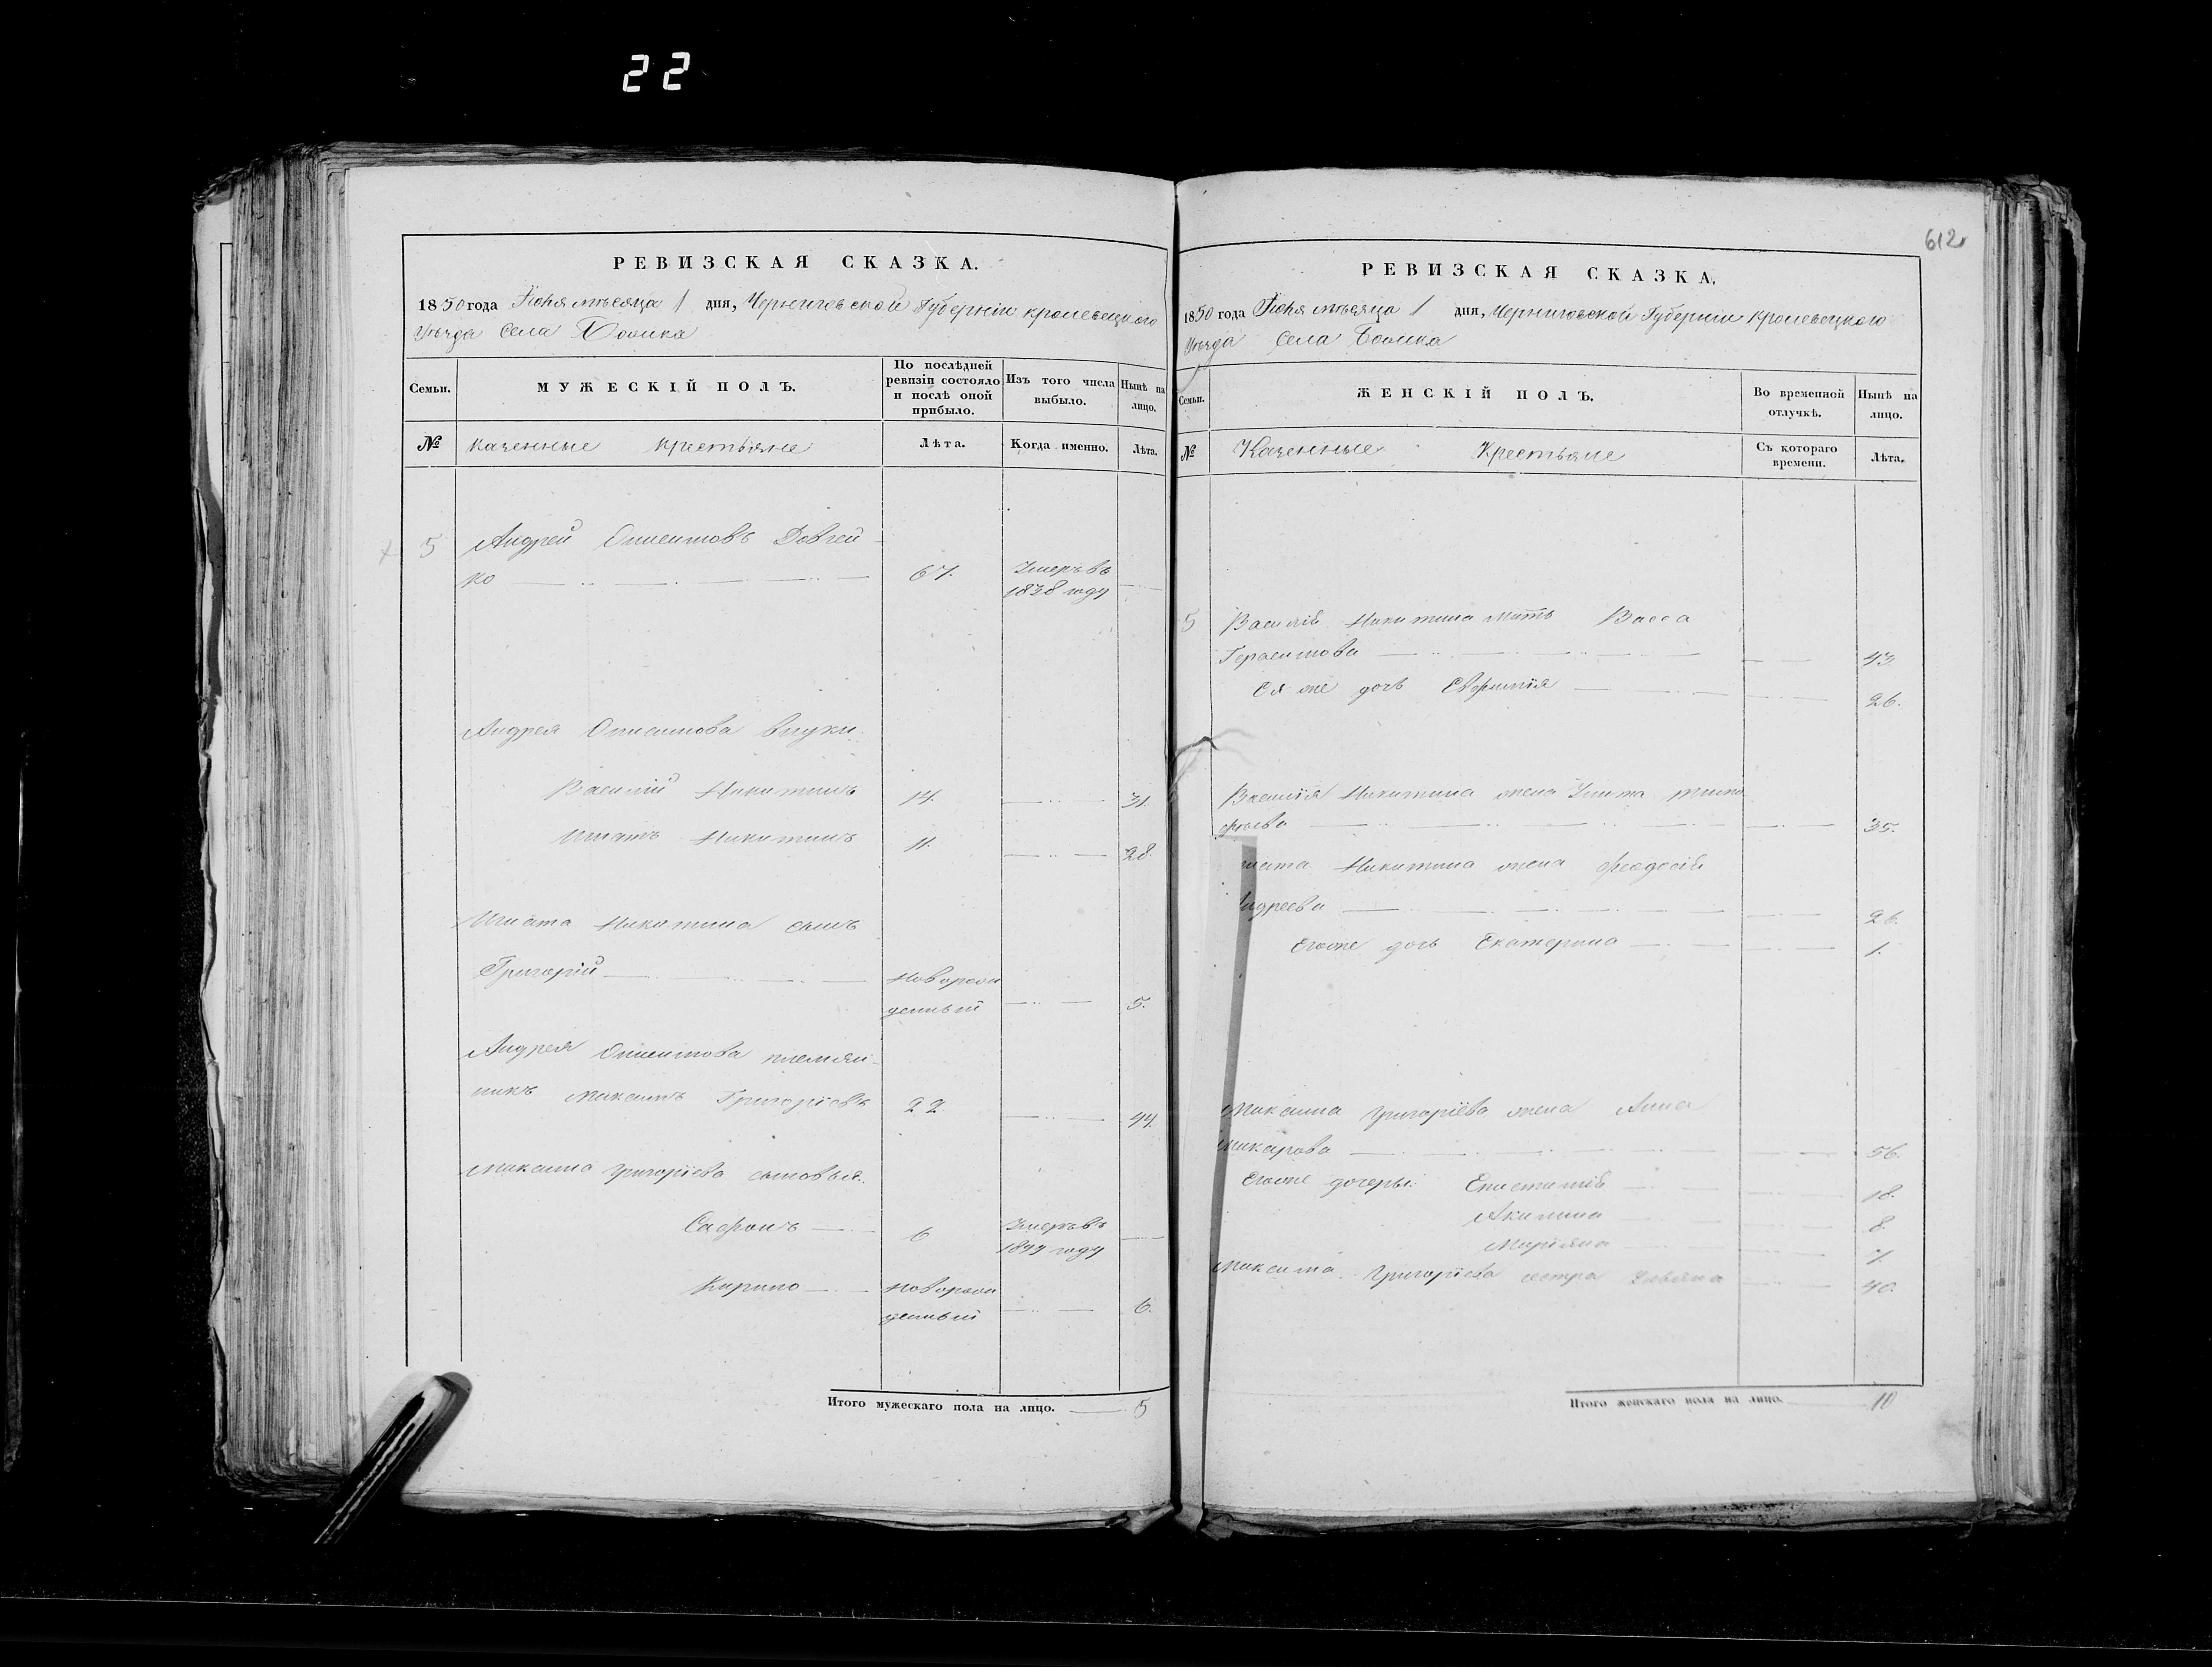 22
612
РЕВИЗСКАЯ СКАЗКА.
1850 года Іюня мѣсяца 1 дня, Черниговской Губерніи Кролевецкого
Уѣзда Села
Семьи. МУЖЕСКІЙ ПОЛЪ. По послѣдней ревизіи состояло и послѣ оной прибыло. Изъ того числа выбыло. Нынѣ на лицо.
№ Казенные Крестьяне Лѣта. Когда именно. Лѣта.
5 Андрей Довгей-
ко 67. Умеръ въ
1838 году
Андрея внуки
Василий Никитинъ 14. 31.
Игнатъ Никитинъ 11. 28.
Игната Никитина сынъ
Григорій Новорож
денный 5.
Андрея племян-
никъ Максимъ Григоріевъ 22 44.
Максима Григоріева сыновья.
Сафронъ 6 Умеръ въ
1844 году
Кирило Новорож
денный 6.
Итого мужескаго пола на лицо. 5
РЕВИЗСКАЯ СКАЗКА.
1850 года Іюня мѣсяца 1 дня, Черниговской Губерніи Кролевецкого
Уѣзда Села
Семьи. ЖЕНСКІЙ ПОЛЪ. Во временной отлучкѣ. Нынѣ на лицо.
№ Казенные Крестьяне Съ котораго времени. Лѣта.
5 Василія Никитина мать Васса
Герасимова 43.
Ея же дочь Евфимія 26.
Василія Никитина жена
35.
ната Никитина жена Феодосія
ндреева 26.
Егоже дочь Екатерина 1.
Максима Григоріева жена Анна
Макарова 56.
Егоже дочеры: Епистимія 18.
Акилина 8.
Маріяна
Максима Григоріева сестра Ульяна 40.
Итого женскаго пола на лицо. 10